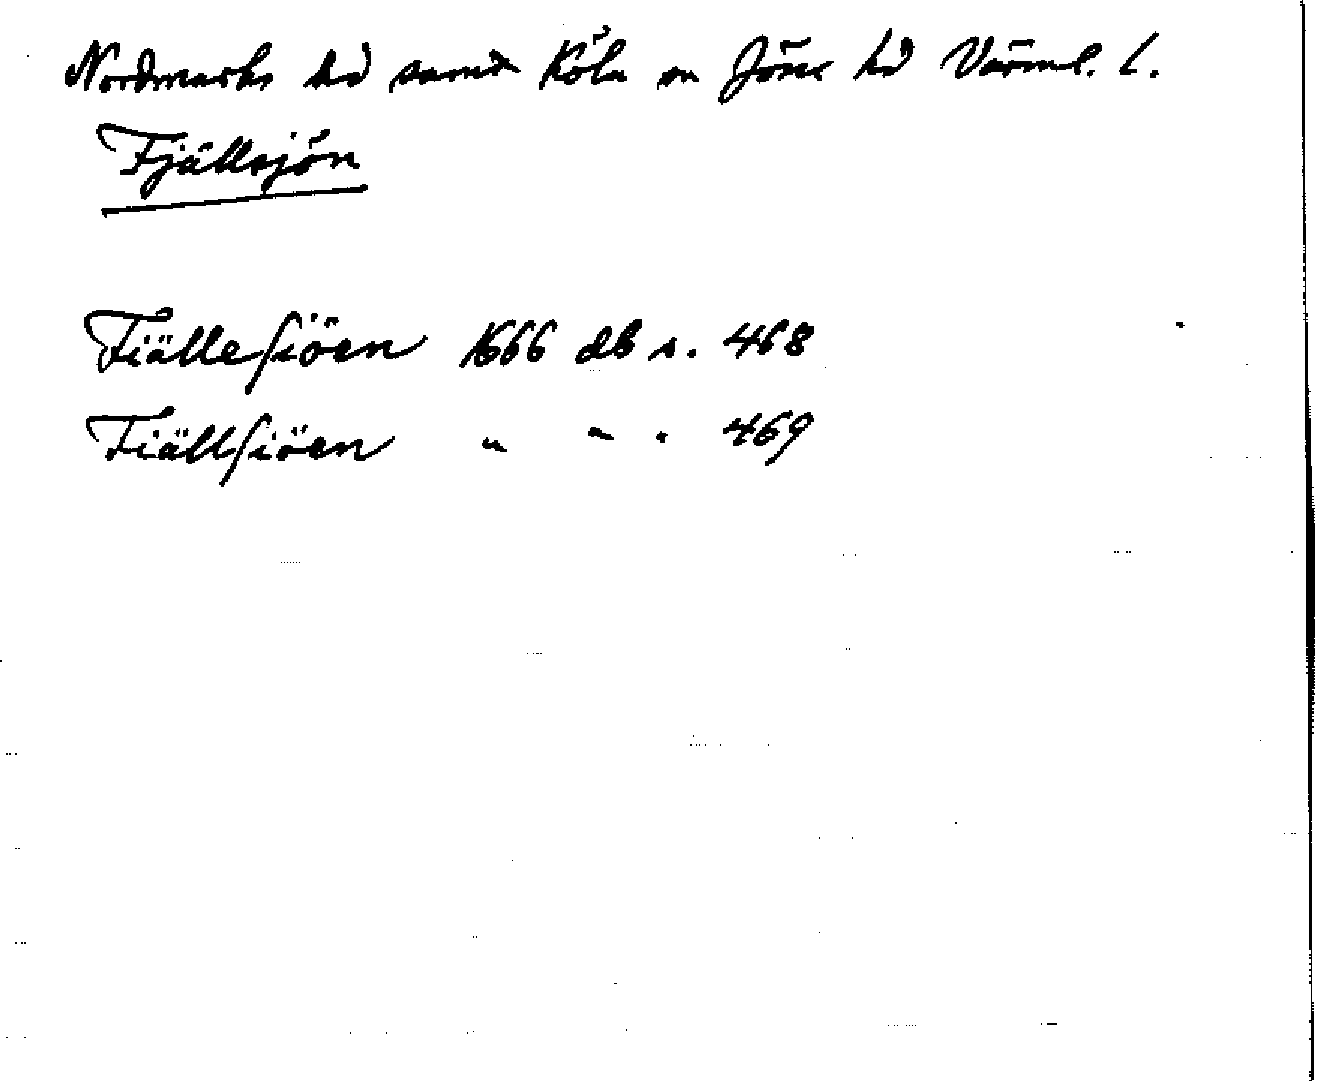 Nordmarks hd samt Köla sn Jösse hd Värml. l.
Fjällsjön
Fiälleſiöen 1666 db s. 468
Fiällſiöen " " " 469